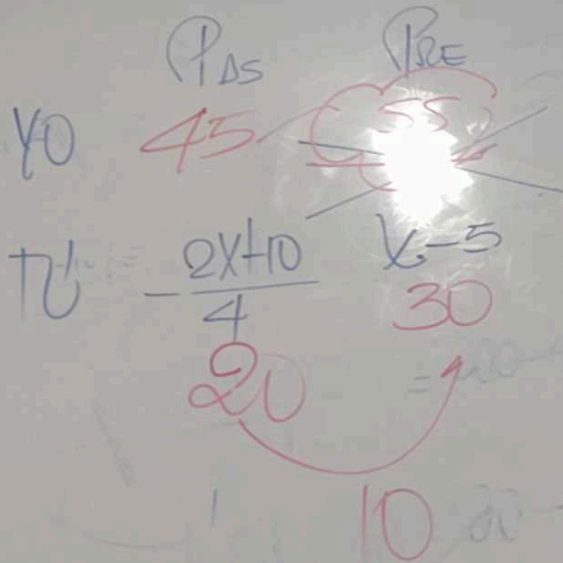 PAS PRE
YO 45 55
TÚ - 2X+10 X-5
4 30
20 =
10